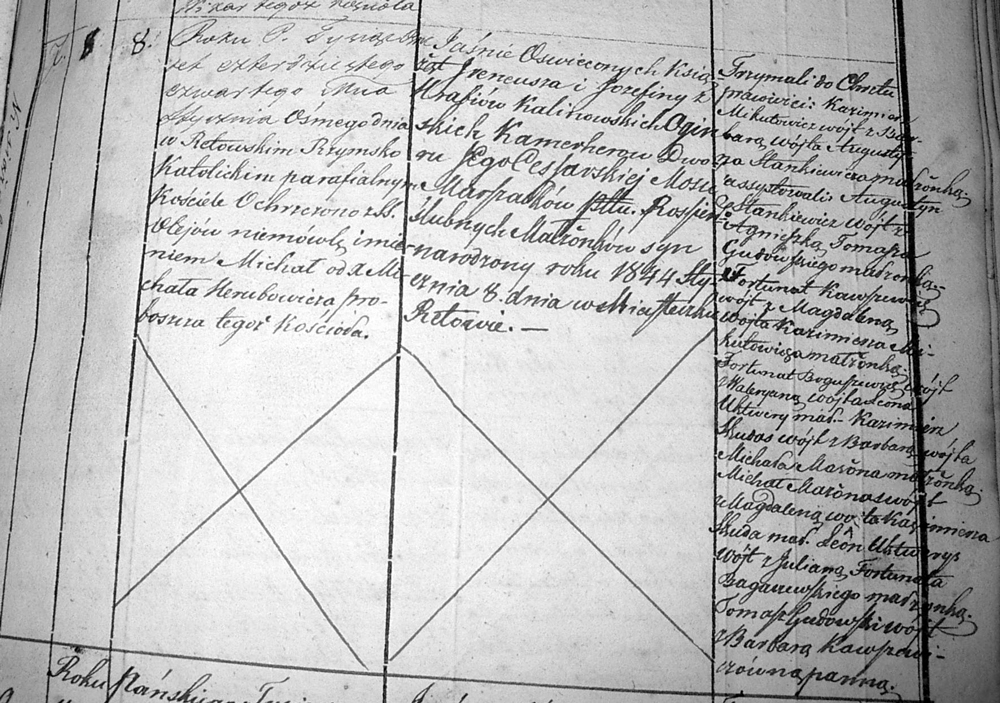 Wikar tegoż kościoła
8.
Roku P. Tysiąc Ośm-
set czterdziestego
czwartego Mca
Stycznia Osmego dnia
w Retowskim Rzymsko
Katolickim parafialnym
Kościele Ochrzczono z SS.
Olejów niemowlę imie-
niem Michał od X Mi-
chała Herubowicza pro-
boszcza tegoż Kościoła.
Jaśnie Oswieconych Xsią-
żąt Ireneusza i Jozefiny z
Hrafiów Kalinowskich Ogiń-
skich Kamerherow Dwo-
ru Jego Cesarskiej Mości
Marszałków pttu. Rossień:
ślubnych Małżonków syn
narodzony roku 1844 Sty-
cznia 8. dnia w Miasteczku
Retowie. —
Trzymali do Chrztu
pracowici: Kazimierz
Mikutowicz wójt z Bar-
barą wójta Augusty-
na Stankiewicza małżonką.
assystowali: Augustyn
Stankiewicz wójt z
Agnieszką Tomasza
Gudowskiego małżonką.
Fortunat
wójt z Magdaleną
wójta Kazimierza Mi-
kutowicza małżonką.
Fortunat wójt
z Waleryaną wójta Leona
Ustwery małż. Kazimierz
Skudas wójt z Barbarą wójta
Michała Marona małżonką.
Michał Maronas wójt
z Magdaleną wójta Kazimierza
Skuda małż. Leon Ustwerys
wójt z Julianą Fortunata
małżonką.
Tomasz Gudowski wójt
z Barbarą Kawszewi-
czówną panną.
Roku Pańskiego